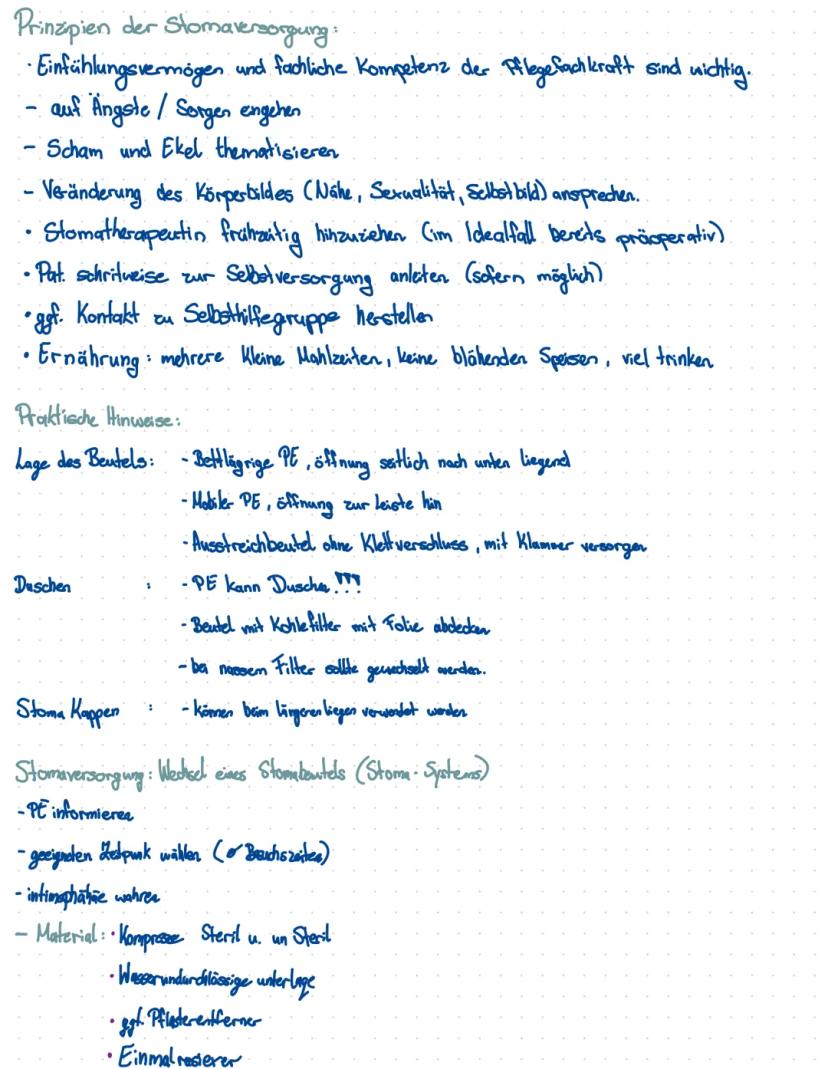 Prinzipien der Stomaversorgung:
· Einfühlungsvermögen und fachliche Kompetenz der Pflegefachkraft sind wichtig.
- auf Ängste / Sorgen engehen
- Scham und Ekel thematisieren
- Veränderung des Körperbildes (Nähe, Sexualität, Selbstbild) ansprechen.
· Stomatherapeutin frühzeitig hinzuziehen (im Idealfall bereits präoperativ)
· Pat. schrittweise zur Selbstversorgung anleiten (sofern möglich)
· ggf. Kontakt zu Selbsthilfegruppe herstellen
· Ernährung: mehrere kleine Mahlzeiten, keine blähenden Speisen, viel trinken
Praktische Hinweise:
Lage des Beutels: - Bettlägrige PE, öffnung seitlich nach unten liegend
- Mobiler PE, öffnung zur Leiste hin
- Ausstreichbeutel ohne Klettverschluss, mit Klammer versorgen
Duschen : - PE kann Duschen!!!
- Beutel mit Kohlefilter mit Folie abdecken
- bei nassem Filter sollte gewechselt werden.
Stoma Kappen : - können beim längeren liegen verwendet werden
Stomaversorgung: Wechsel eines Stomabeutels (Stoma-Systems)
- PE informieren
- geeigneten Zeitpunk wählen (Besuchszeiten)
- intimsphäre wahren
- Material: · Kompresse Steril u. un Steril
· Wasserundurchlässige unterlage
· ggf. Pflasterentferner
· Einmalrasierer